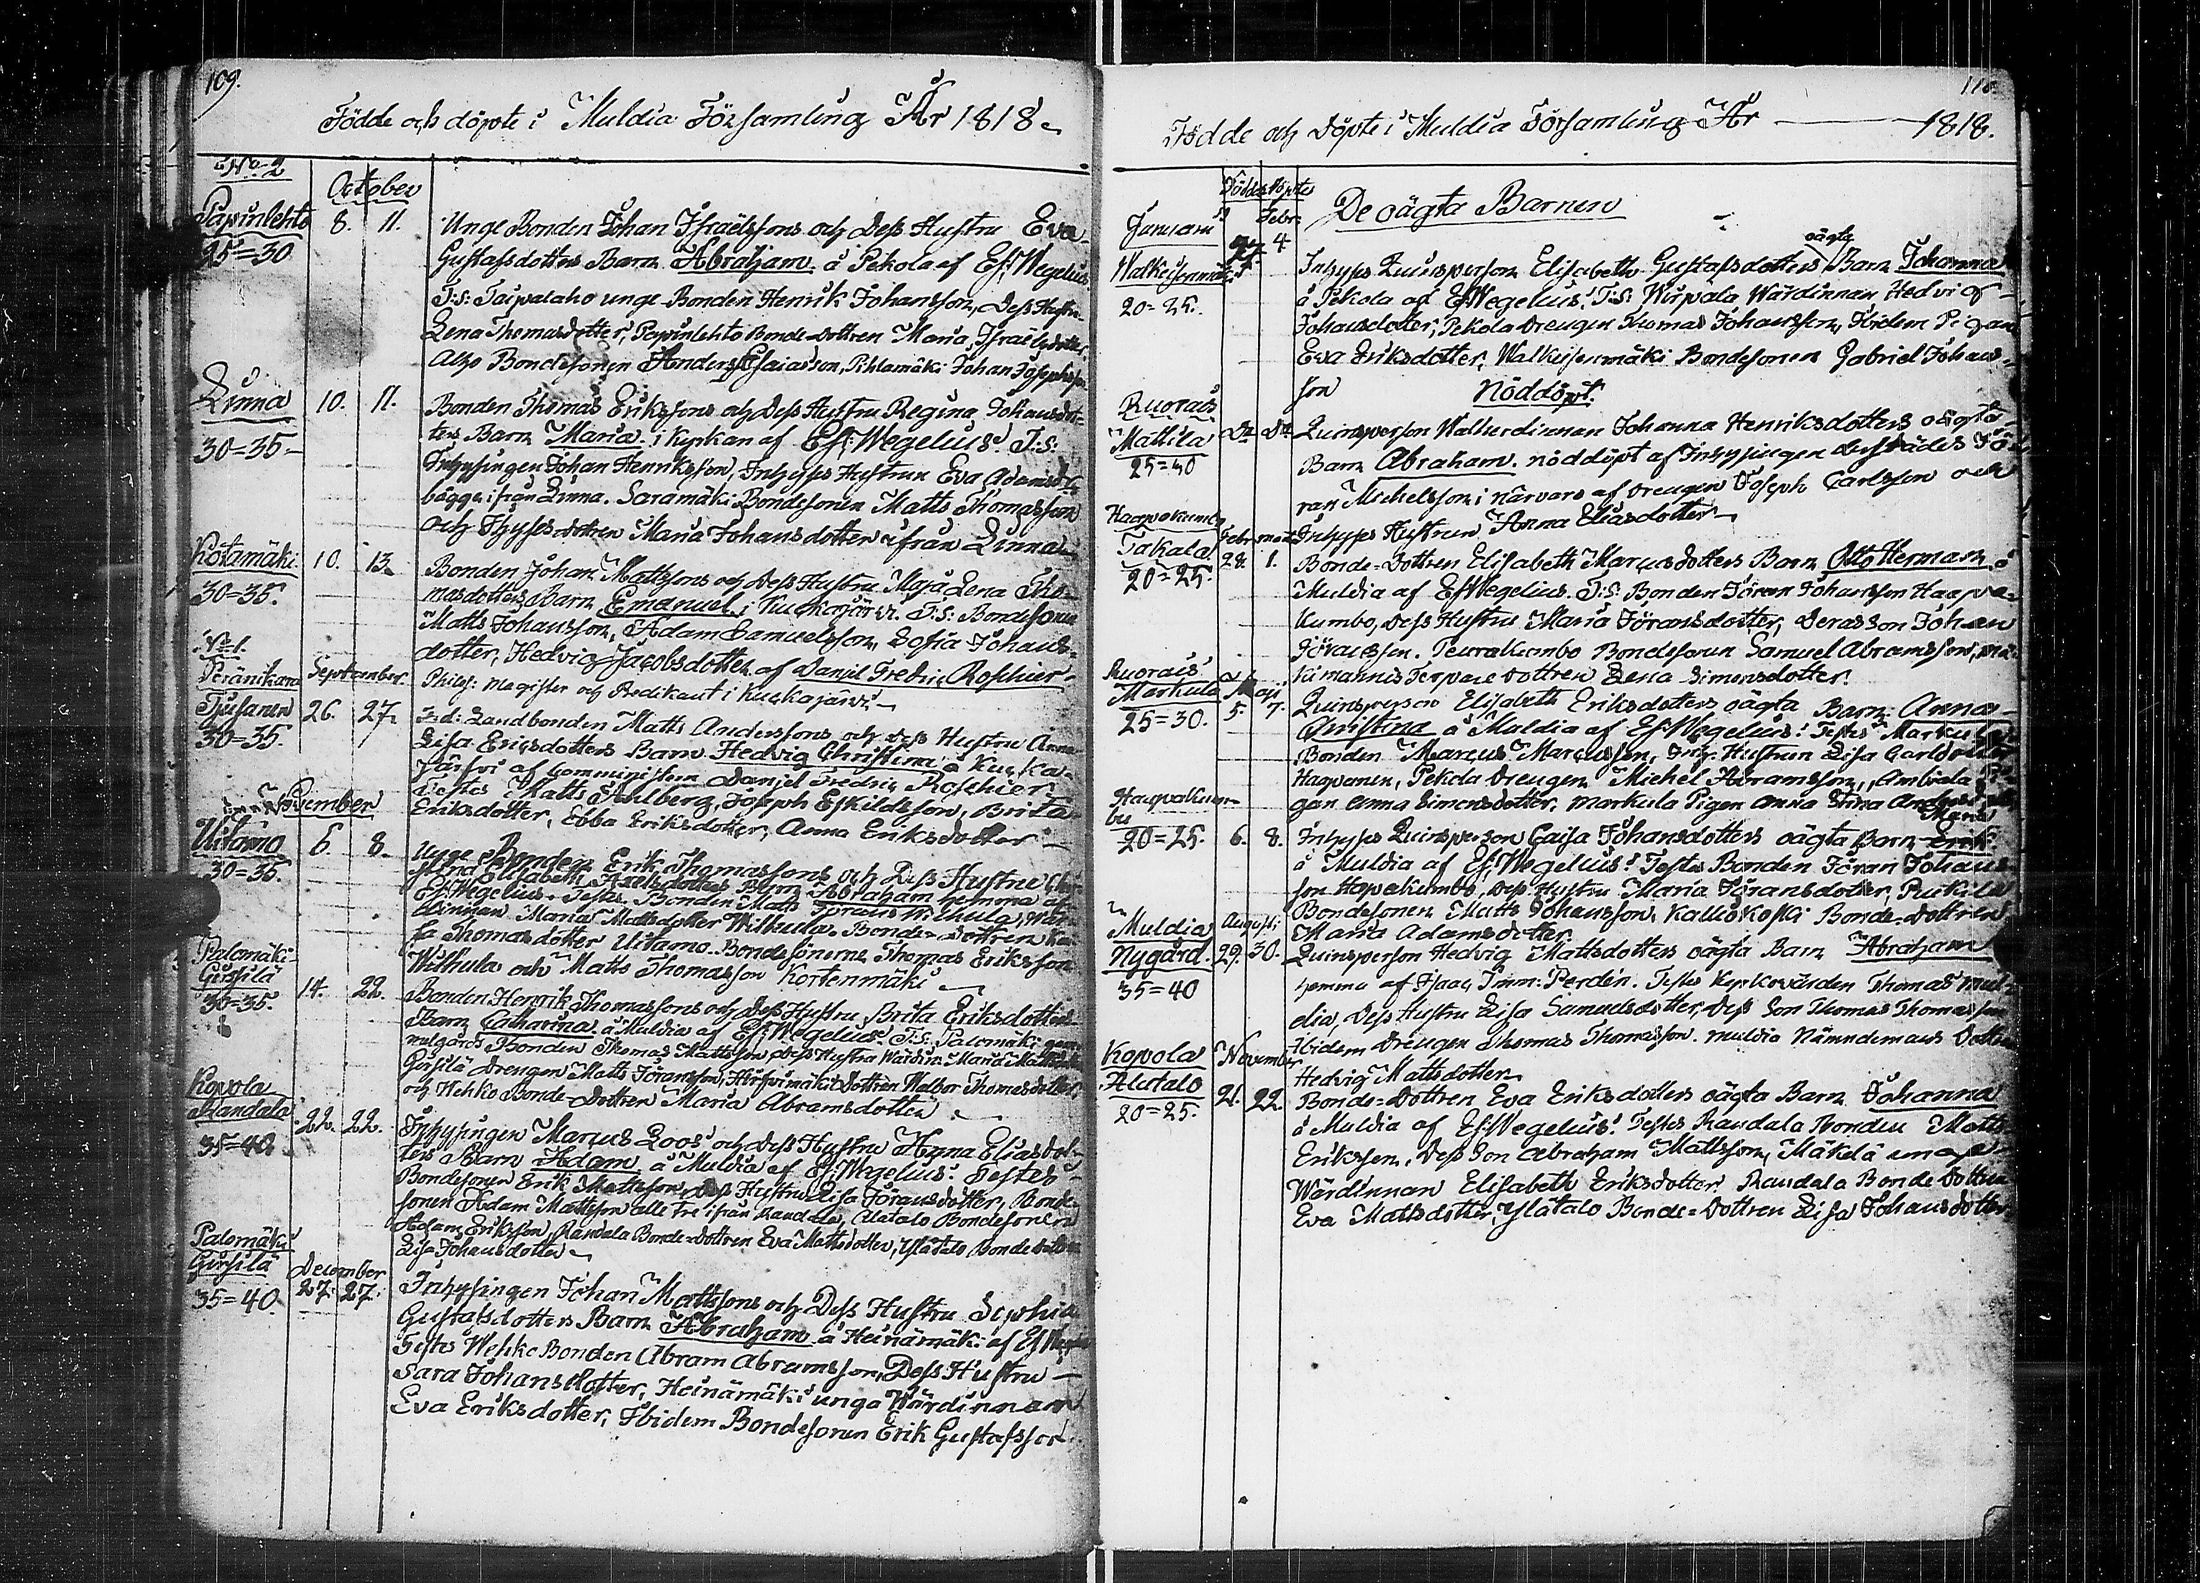 109.
Födde och döpte i Muldia Församling År 1818
No 2
October
Papinlehto 8. 11. Unge Bonden Johan Israëlssons och Dess Hustru Eva
25=30 Gustafsdotters Barn Abraham å Pekola af Es: Wegelius
T:s: Taipalaho unge Bonden Henrik Johansson, Dess Hustru
Lena Thomasdotter, Papinlehto Bonde-Dottren Maria Israëlsdotter
Bondesonen Anders Esaiasson, Pihlamäki Johan Josephsson
Linna 10. 11. Bonden Thomas Erikssons och Dess Hustru Regina Johansdot-
30=35 ters Barn Maria i Kyrkan af Es: Wegelius. T:s:
Inhysingen Johan Henriksson, Inhyses Hustrun Eva Adamsd:r
bägge ifrån Linna. Saramäki Bondesonen Matts Thomasson
och Ihyses dottren Maria Johansdotter ifrån Linna
Kotamäki 10. 13. Bonden Johan Mattssons och Dess Hustru Maja Lena Tho-
30=35. masdotters Barn Emanuel i Kuckajärvi. T:s: Bondesonen
Matts Johansson, Adam Samuelsson, Sofia Johans-
dotter, Hedvig Jacobsdotter af Daniel Fredric Roschier
Philos: Magister och Predikant i Kuckajärvi
No 1.
Peränikara September
Tjusanen 26. 27. Landbonden Matts Anderssons och Dess Hustru Anna
30=35. Lisa Ericsdotters Barn Hedvig Christina å Kucka-
järfvi af Comministern Daniel Fredric Roschier
Testes Matts Ahlberg, Joseph Eskildsson, Brita
Eriksdotter, Ebba Eriksdotter, Anna Eriksdotter
November
Uitamo 6. 8. Unge Bonden Erik Thomassons och Dess Hustru Chri-
30=35. stina Elisabeth Axelsdotters Barn Abraham hemma af
Es: Wegelius. Testes Bonden Matts Wilhula, Wär-
dinnan Maria Mattsdotter Wilhula, Bonde-Dottren
Thomasdotter Uitamo. Bondesönerne Thomas Eriksson
Wilhula och Matts Thomasson Kortenmäki
Palomäki
Girsilä
30=35. 14. 22. Bonden Henrik Thomassons och Dess Hustru Brita Eriksdotters
Barn Catharina å Muldia af Es: Wegelius. T:s: Palomäki
Bonden Thomas Mattsson, Dess Hustru Wärdin: Maria
Girsilä Drengen Matts Göransson, Hirsimäki Dottren Walbor Thomasdotter
och Hehko Bonde-Dottren Maria Abramsdotter
Kopola
Randala 22. 22. Inhysingen Marcus Loos' och Dess Hustru Anna Eliasdot-
35=40. ters Barn Adam å Muldia af Es: Wegelius. Testes
Bondesonen Erik Mattsson, Dess Hustru Lisa Göransdotter, Bonde-
sonen Adam Mattsson alle tre ifrån Randala, Alatalo Bondesonen
Adam Eriksson, Randala Bonde-Dottren Eva Mattsdotter, Ylätalo Bonde dottren
Lisa Johansdotter
Palomäki
Girsilä December
35=40. 27. 27. Inhysingen Johan Mattssons och Dess Hustru Sophia
Gustafsdotters Barn Abraham å Heinämäki af Es: Wegelius
Testes Wehko Bonden Abram Abramsson, Dess Hustru
Sara Johansdotter, Heinämäki unga Wärdinnan
Eva Eriksdotter, Ibidem Bondesonen Erik Gustafsson
110.
Födde och döpte i Muldia Församling År 1818.
Födde Döpte
De oägta Barnen
Januarii Febr:
Walkeisenmäki 4 Inhyses Quinsperson Elisabeth Gustafsdotters oägta Barn Johanna
20=25. å Pekola af Es: Wegelius. T:s: Wirpala Wärdinnan Hedvig
Johansdotter, Pekola Drengen Thomas Johansson, Ibidem Pigan
Eva Eriksdotter, Walkeisenmäki Bondesonen Gabriel Johans-
son Nöddöpt.
Ruorais
Mattila Do Do Quinsperson Walherdinnan Johanna Henriksdotters oägta
25=40 Barn Abraham. nöddöpt af Inhysingen Gö-
ran Michelsson i närvaro af Drengen Joseph Carlsson och
Inhyses Hustrun Anna Eliasdotter
Haapakumbu
Takala Febr: Mart:
20=25. 28. 1. Bonde-Dottren Elisabeth Marcusdotters Barn Otto Herman å
Muldia af Es: Wegelius. T:s: Bonden Göran Johansson Haapa-
kumbo, Dess Hustru Maria Göransdotter, Deras son Johan
Göransson. Peurakumbo Bondesonen Samuel Abramsson,
dottren Lena Simonsdotter.
Ruorais
Markula Maji
25=30. 5. 7. Quinsperson Elisabeth Eriksdotters oägta Barn Anna
Christina å Muldia af Es: Wegelius. Testes Markula
Bonden Marcus Marcusson, Inh: Hustrun Lisa Carlsdotter
Haapanen, Pekola Drengen Michel Abramsson, Ambiala Pi-
gan Anna Simonsdotter, Markula Pigan Anna Stina
Haapakum-
bu Maria
20=25. 6. 8. Inhyses Quinsperson Caisa Johansdotters oägta Barn Erik
å Muldia af Es: Wegelius. Testes Bonden Göran Johans-
son Hapakumbo, Dess Hustru Maria Göransdotter, Pukila
Bondesonen Matts Johansson, Kallioskoski Bonde-Dottren
Maria Adamsdotter.
Muldia Augusti
Nygård. 29. 30. Quinsperson Hedvig Mattsdotters oägta Barn Abraham
35=40 hemma af Isaac Imm: Perdén. Testes Kyrkovärden Thomas Mul-
dia, Dess Hustru Lisa Samuelsdotter, Dess Son Thomas Thomasson
Ibidem Drengen Thomas Thomasson. Muldia Nämndemans Dotter
Hedvig Mattsdotter
Kopola November
Alatalo
20=25. 21. 22. Bonde-Dottren Eva Eriksdotters oägta Barn Johanna
å Muldia af Es: Wegelius. Testes Randala Bonden Matts
Eriksson, Dess Son Abraham Mattsson, Mäkelä unga
Wärdinnan Elisabeth Eriksdotter Randala Bonde Dottren
Eva Mattsdotter, Ylätalo Bonde-Dottren Lisa Johansdotter